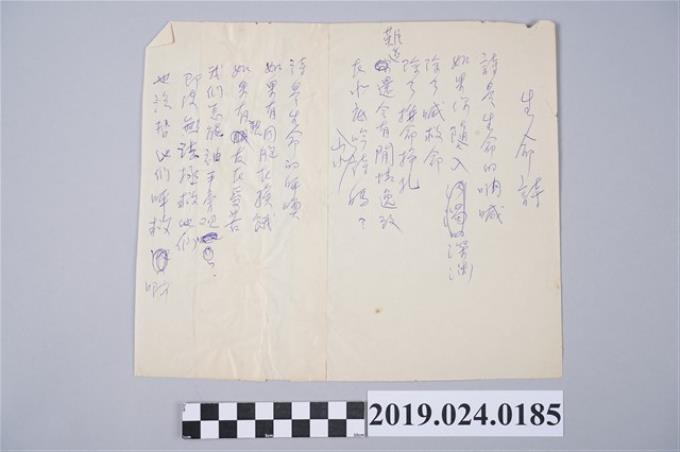 生命詩
詩是生命的吶喊
如果你墮入深淵
除了喊救命
除了拚命掙扎
難道還會有閒情逸致
在水底吟詩嗎？
詩是生命的呼喚
如果有同胞在挨餓
如果有親友在受苦
我們怎能袖手旁觀？
即使無法拯救他們
也該替他們呼救
2019.024.0185